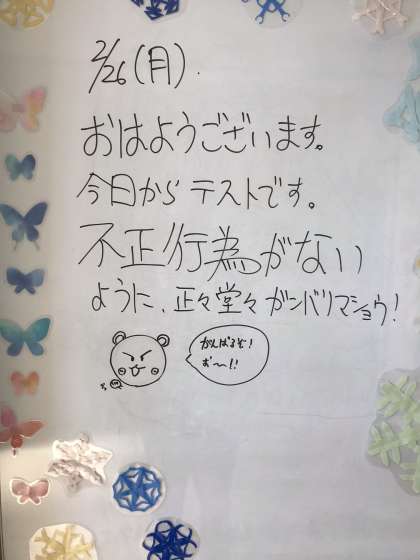 2/26(月).
おはようございます。
今日から テストです。
不正行為がない
ように、正々堂々 ガンバリマショウ!
がんばるぞ!
お〜!!